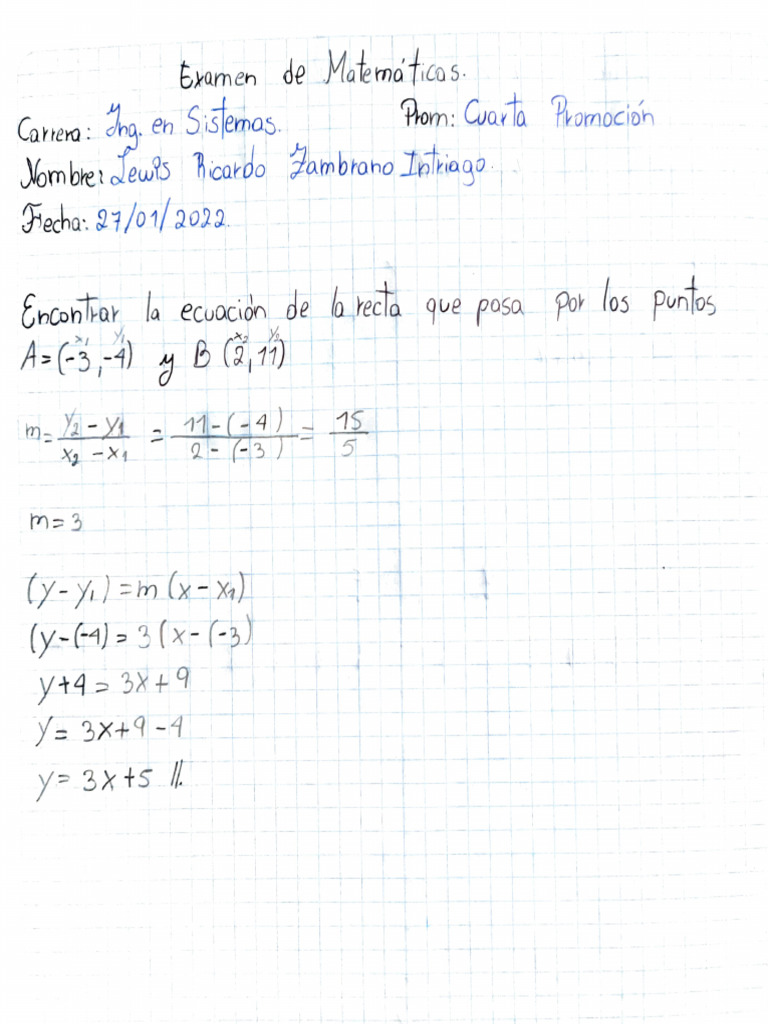 Examen de Matemáticas.
Carrera: Ing. en Sistemas. Prom: Cuarta Promoción
Nombre: Lewis Ricardo Zambrano Intriago.
Fecha: 27/01/2022.
Encontrar la ecuación de la recta que pasa por los puntos
x₁ y₁ x₂ y₂
A=(-3,-4) y B (2,11)
m= y₂-y₁ / x₂-x₁ = 11-(-4) / 2-(-3) = 15 / 5
m=3
(y-y₁)=m(x-x₁)
(y-(-4)=3(x-(-3)
y+4=3x+9
y=3x+9-4
y=3x+5 //.